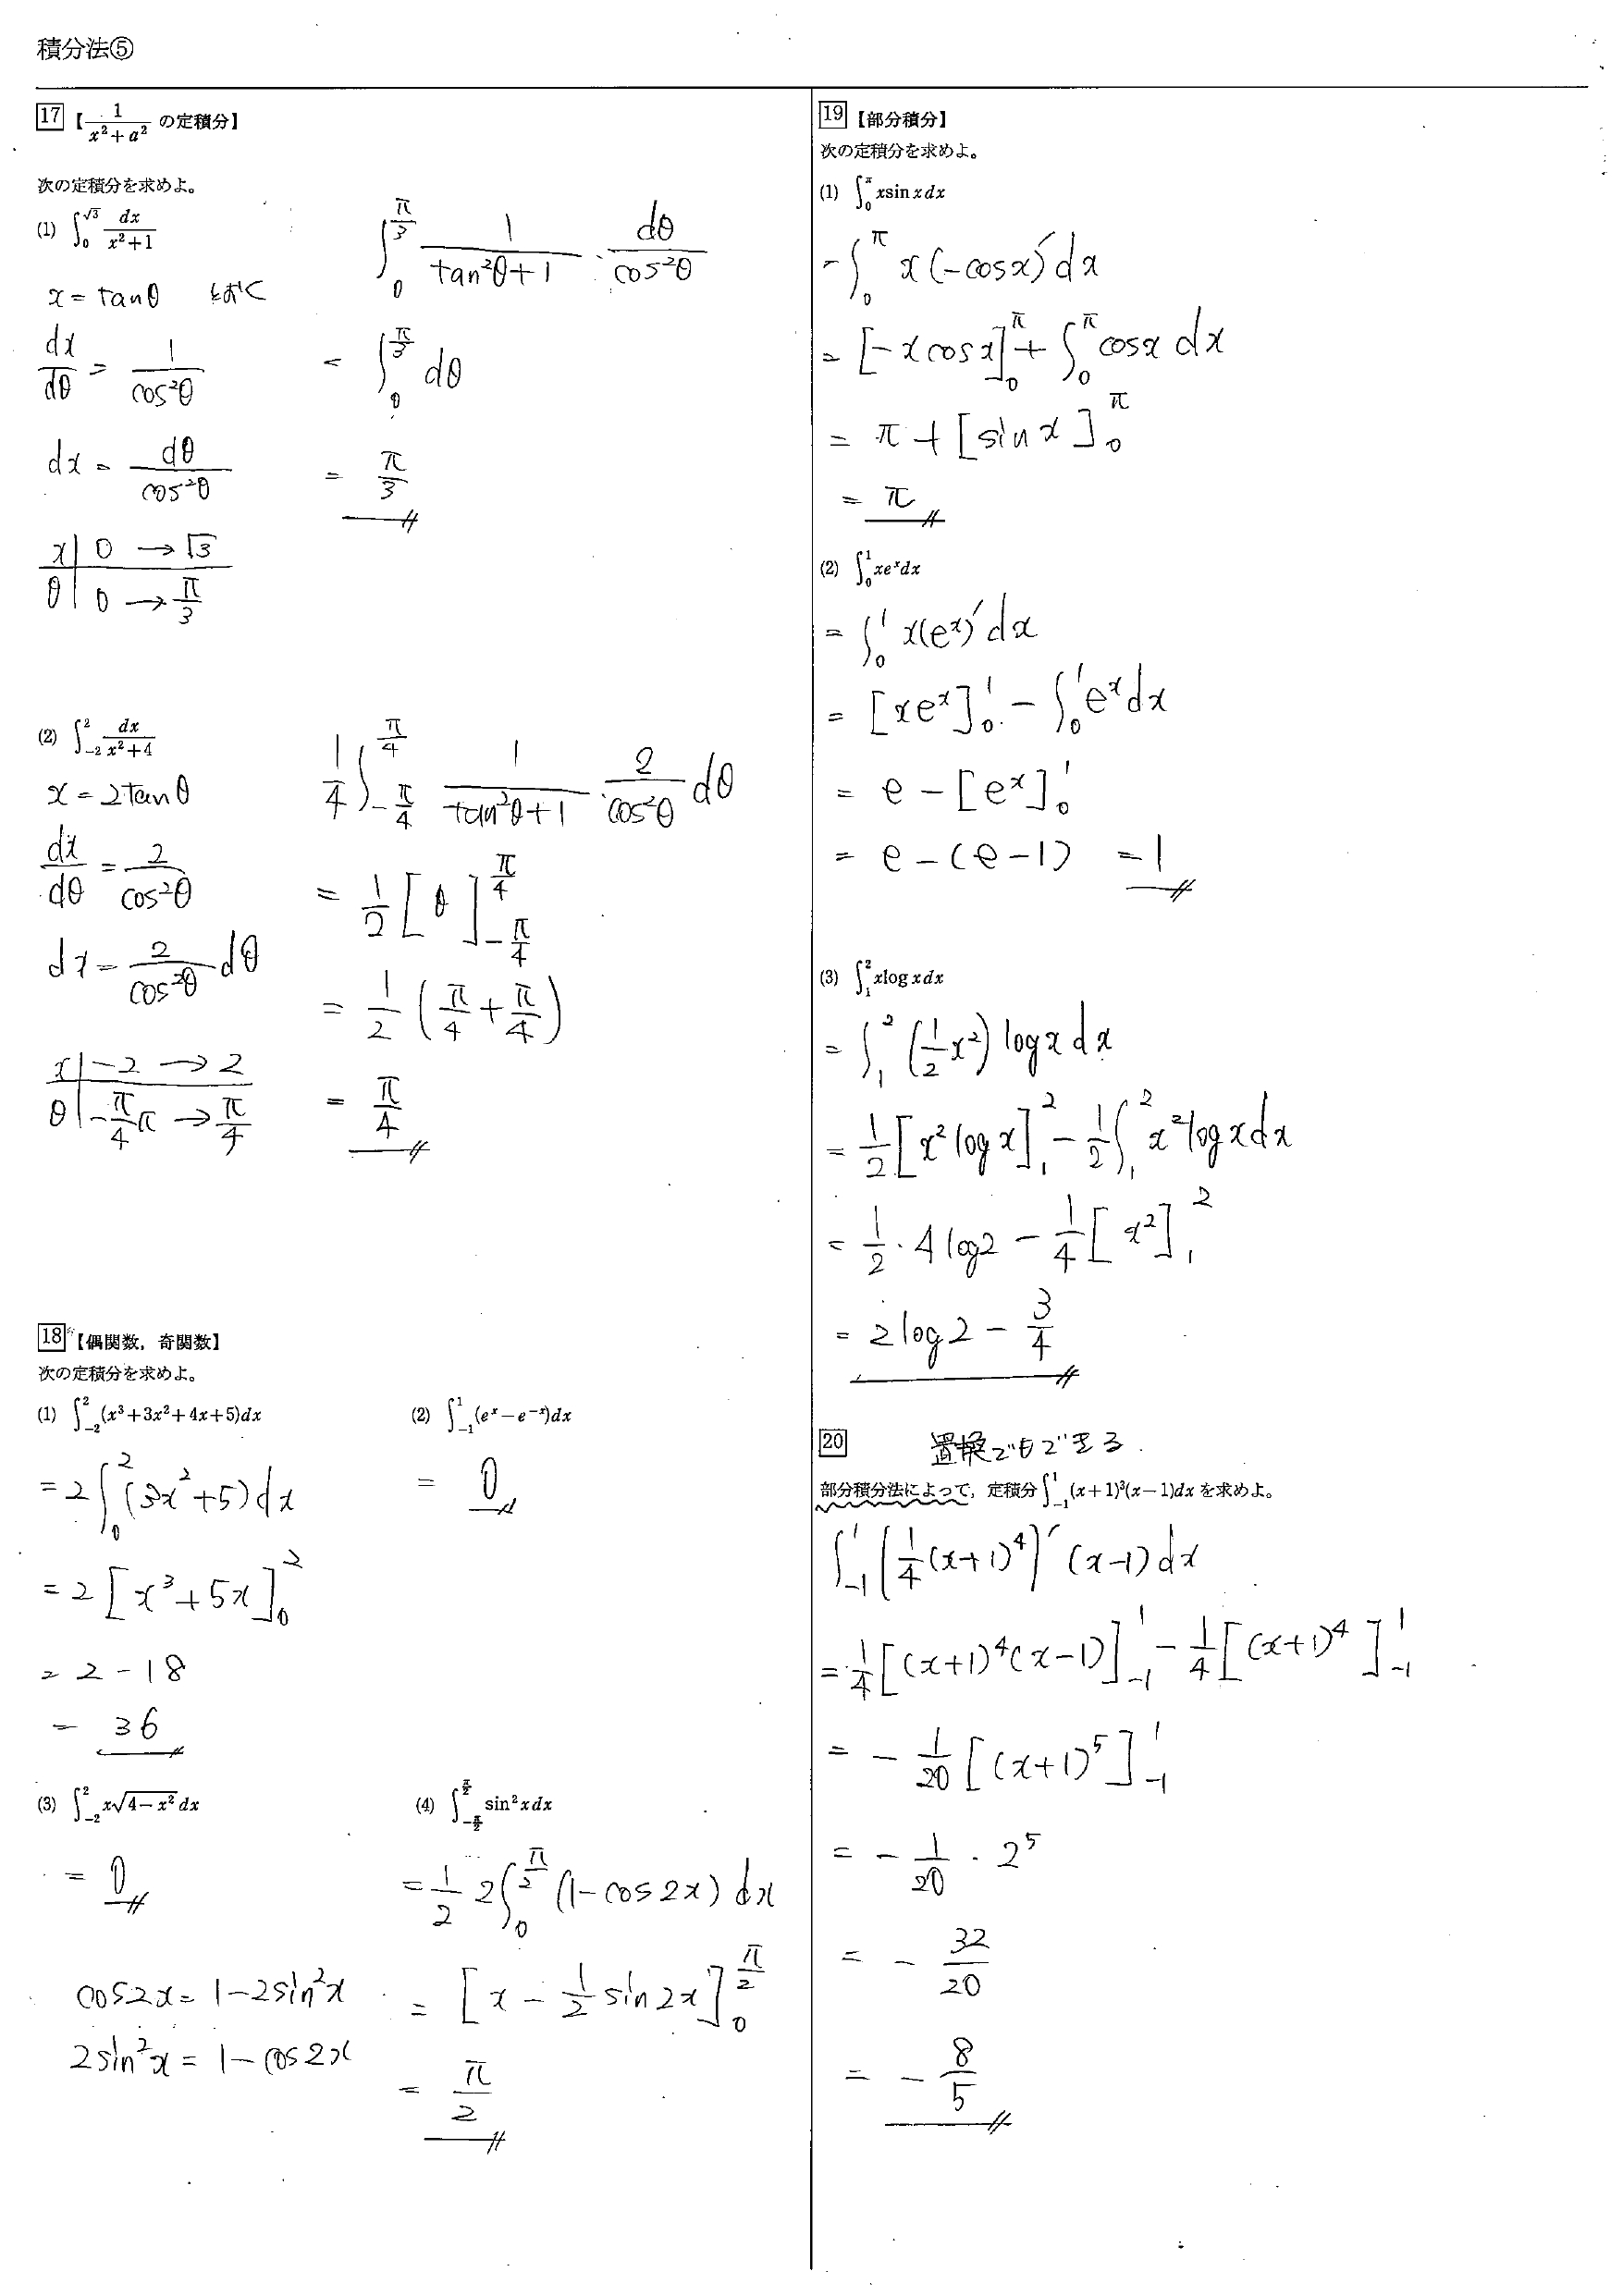 積分法⑤
17 【1/(x²+a²) の定積分】
次の定積分を求めよ。
(1) ∫₀^√3 dx/(x²+1)
x = tanθ とおく
dx/dθ = 1/cos²θ
dx = dθ/cos²θ
x | 0 → √3
θ | 0 → π/3
∫₀^(π/3) 1/(tan²θ+1) · dθ/cos²θ
= ∫₀^(π/3) dθ
= π/3
(2) ∫₋₂² dx/(x²+4)
x = 2tanθ
dx/dθ = 2/cos²θ
dx = 2/cos²θ dθ
x | -2 → 2
θ | -π/4 π → π/4
1/4 ∫_(-π/4)^(π/4) 1/(tan²θ+1) · 2/cos²θ dθ
= 1/2 [θ]_(-π/4)^(π/4)
= 1/2 (π/4 + π/4)
= π/4
18 【偶関数，奇関数】
次の定積分を求めよ。
(1) ∫₋₂² (x³+3x²+4x+5)dx
= 2∫₀² (3x²+5)dx
= 2[x³+5x]₀²
= 2 - 18
= 36
(2) ∫₋₁¹ (eˣ-e⁻ˣ)dx
= 0
(3) ∫₋₂² x√(4-x²) dx
= 0
cos2x = 1-2sin²x
2sin²x = 1-cos2x
(4) ∫_(-π/2)^(π/2) sin²x dx
= 1/2 2∫₀^(π/2) (1-cos2x) dx
= [x - 1/2 sin2x]₀^(π/2)
= π/2
19 【部分積分】
次の定積分を求めよ。
(1) ∫₀^π x sin x dx
= ∫₀^π x(-cosx)′dx
= [-x cosx]₀^π + ∫₀^π cosx dx
= π + [sinx]₀^π
= π
(2) ∫₀¹ xeˣdx
= ∫₀¹ x(eˣ)′dx
= [xeˣ]₀¹ - ∫₀¹ eˣdx
= e - [eˣ]₀¹
= e - (e-1) = 1
(3) ∫₁² x log x dx
= ∫₁² (1/2 x²) logx dx
= 1/2 [x² logx]₁² - 1/2 ∫₁² x² logx dx
= 1/2 · 4log2 - 1/4 [x²]₁²
= 2log2 - 3/4
20 置換でもできる.
部分積分法によって，定積分 ∫₋₁¹ (x+1)³(x-1)dx を求めよ。
∫₋₁¹ (1/4 (x+1)⁴)′ (x-1)dx
= 1/4 [(x+1)⁴(x-1)]₋₁¹ - 1/4 [(x+1)⁴]₋₁¹
= - 1/20 [(x+1)⁵]₋₁¹
= - 1/20 · 2⁵
= - 32/20
= - 8/5